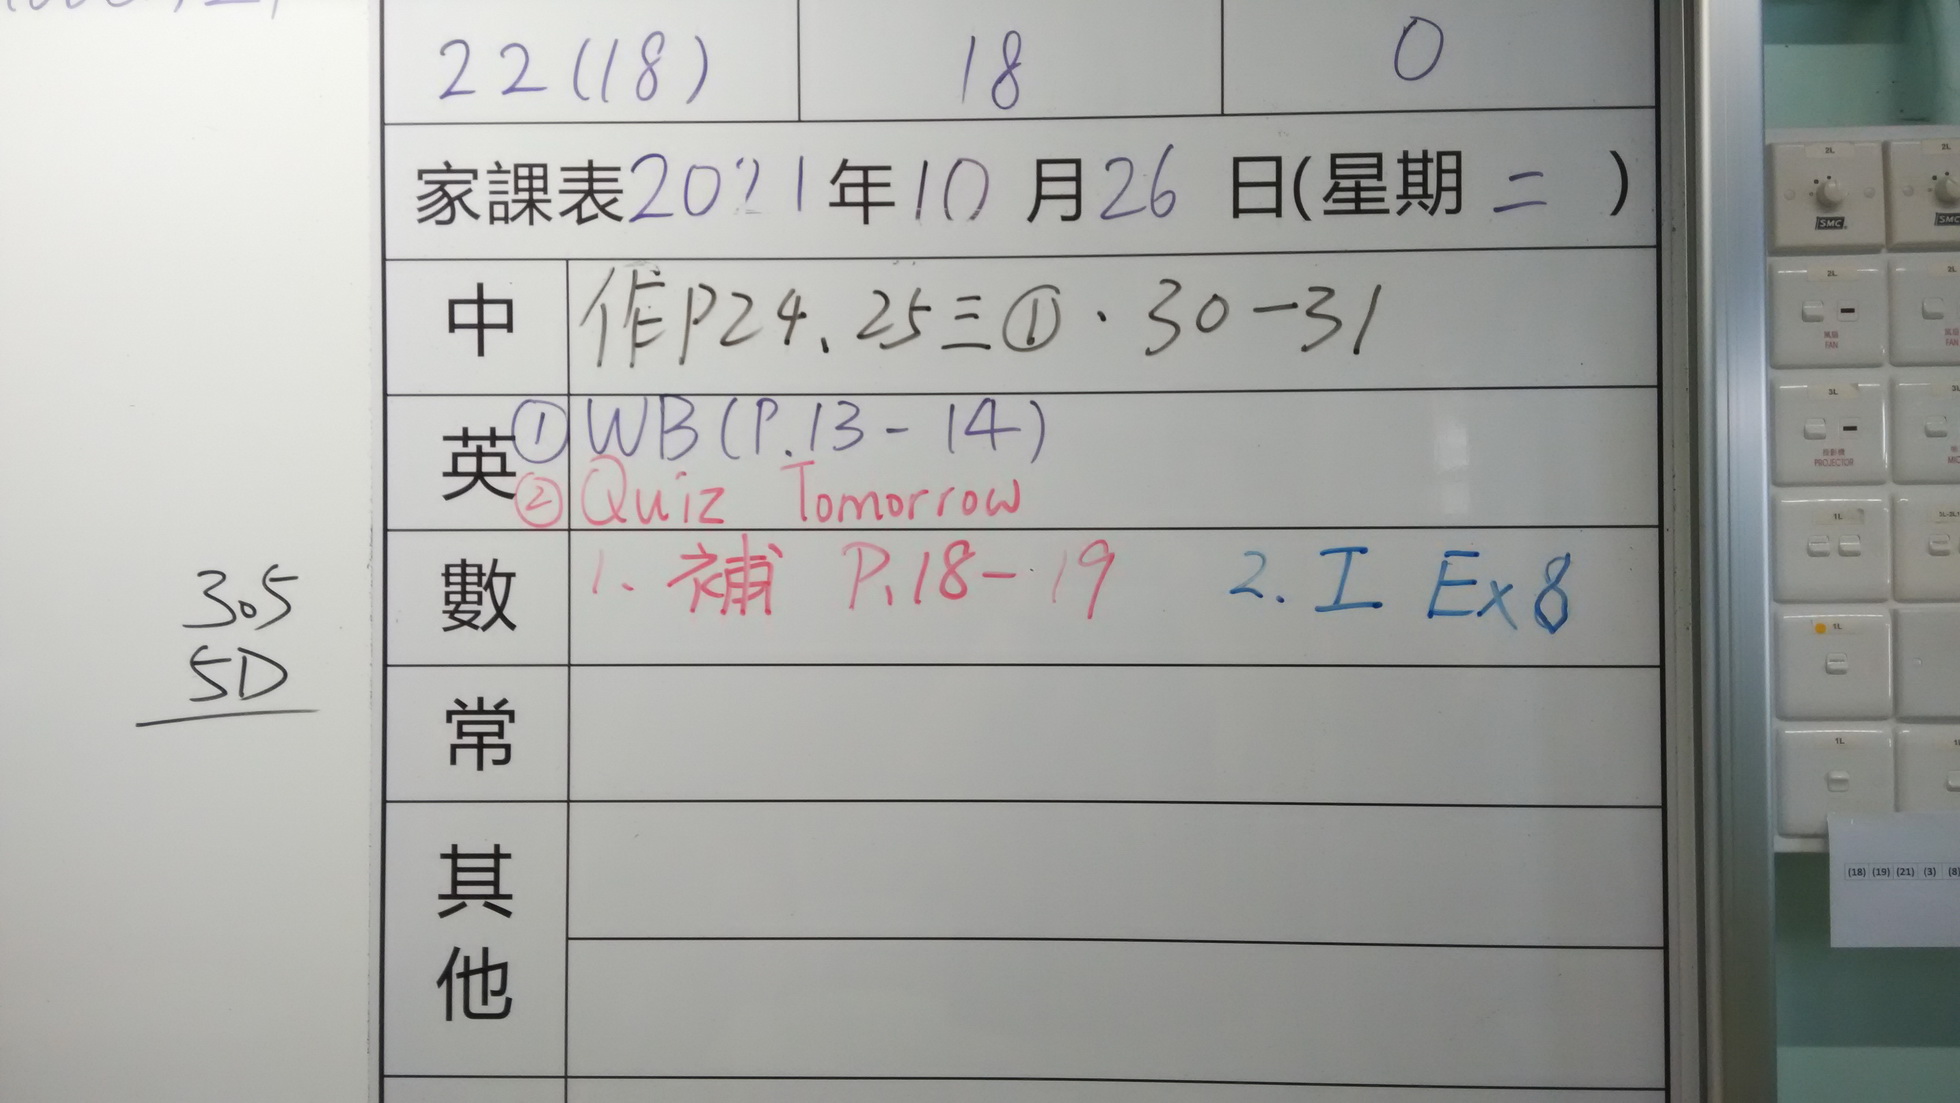 22(18) 18 0
家課表2021年10月26日(星期二)
中 作P24、25三①·30-31
英 ① WB(P.13-14)
② Quiz Tomorrow
數 1. 補 P.18-19 2. 工 Ex8
305
5D
常
其
他
2L 2L
SMC SMC
2L 2L
風扇 風扇
FAN FAN
3L
投影機
PROJECTOR
1L
1L
1L
(18) (19) (21) (3) (8)